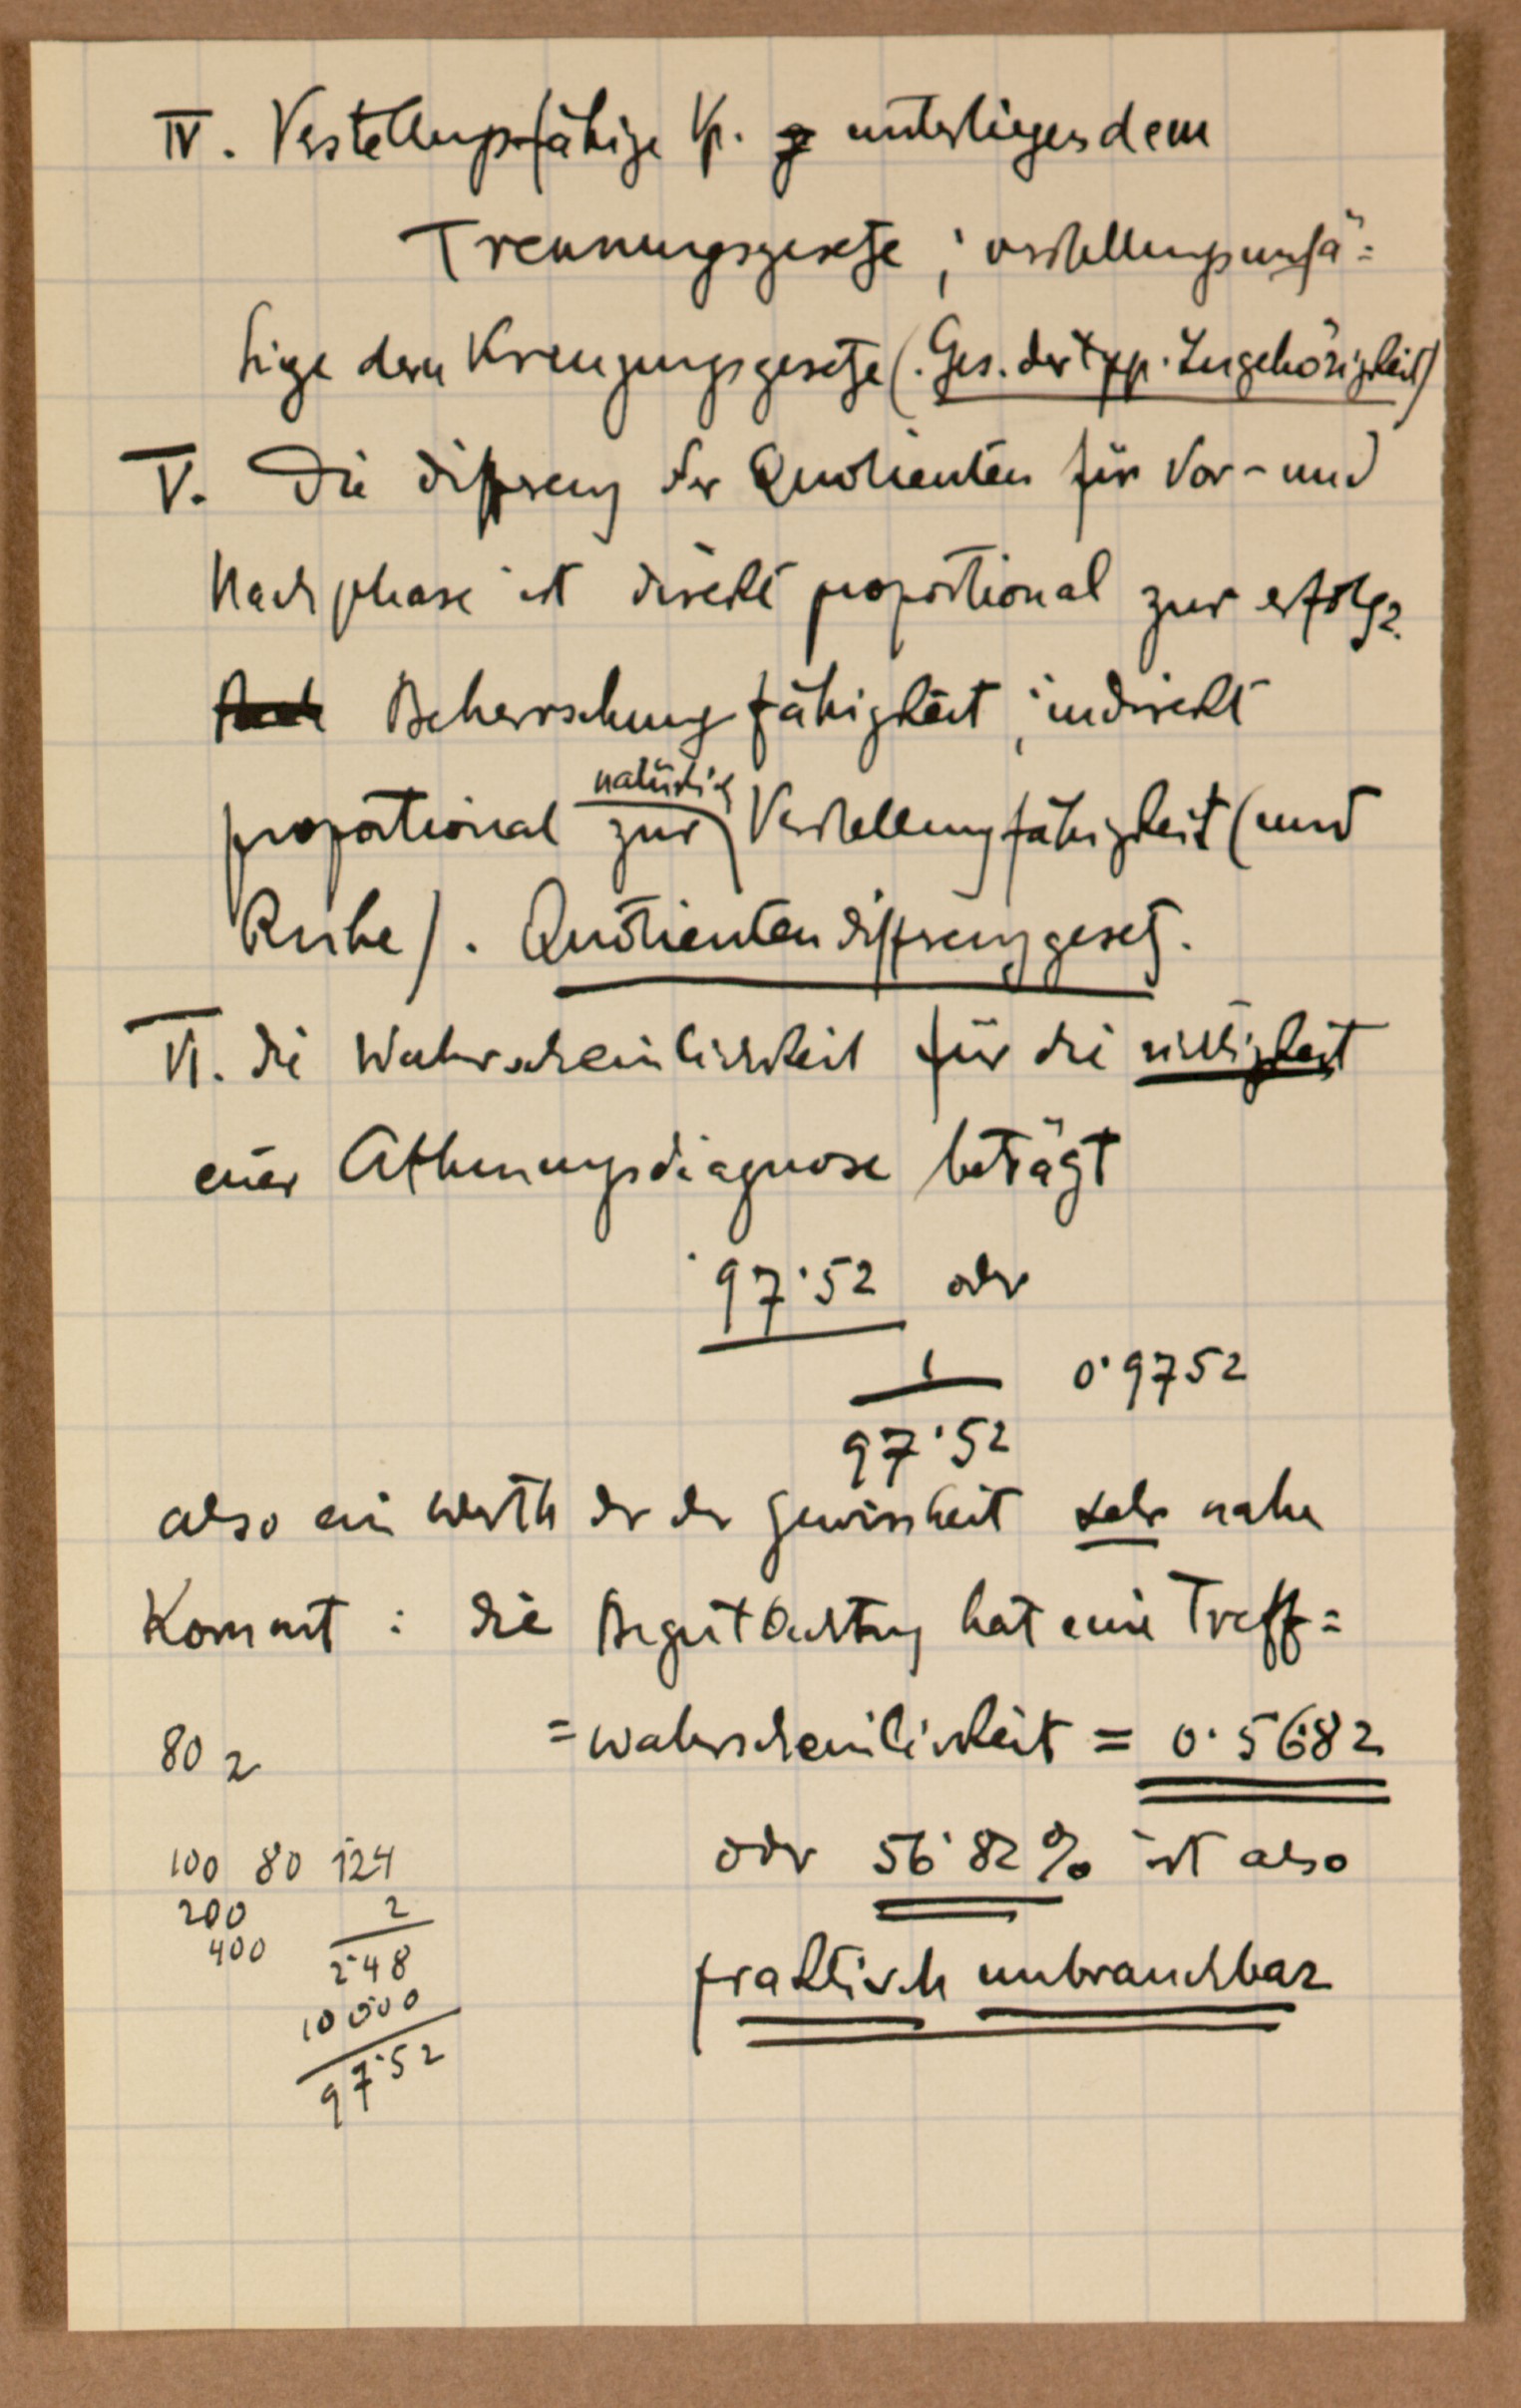 IV. Verstellungsfähige Vp. unterliegen dem
Trennungsgesetze; verstellungsunfä=
hige dem Kreuzungsgesetze (Ges. der typ. Zugehörigkeit)
V. Die Differenz der Quotienten für Vor- und
Nachphase ist direkt proportional zur erfolgr.
Beherrschungsfähigkeit, indirekt
natürlich
proportional zur Verstellungsfähigkeit (und
Ruhe). Quotientendifferenzgesetz.
VI. die Wahrscheinlichkeit für die richtigkeit
einer Athmungsdiagnose beträgt
97·52 oder
1 0·9752
97·52
also ein Werth der der Gewissheit sehr nahe
kommt: die Begutachtung hat eine Treff=
=wahrscheinlichkeit = 0·5682
80 2
oder 56·82% ist also
100 80 124
200 2
400
248
praktisch unbrauchbar
10000
97·52